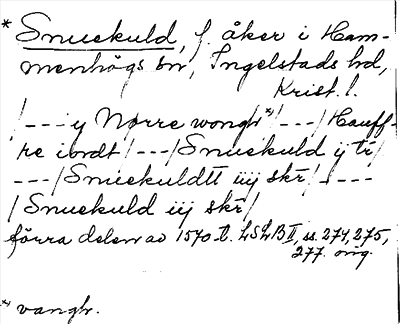 * Snuekuld, f. åker i Ham-
menhögs sn, Ingelstads hd,
Krist. l.
/---y Norre wongh *)/---/Hauff-
re iordt/---/Snuekuld ÿ tr/
---/Snuekuldtt iiÿ skr/----
/Snuekuld iij skr/
förra delen av 1570-t. LSLB II, ss. 274, 275,
277. orig.
*) vangh.